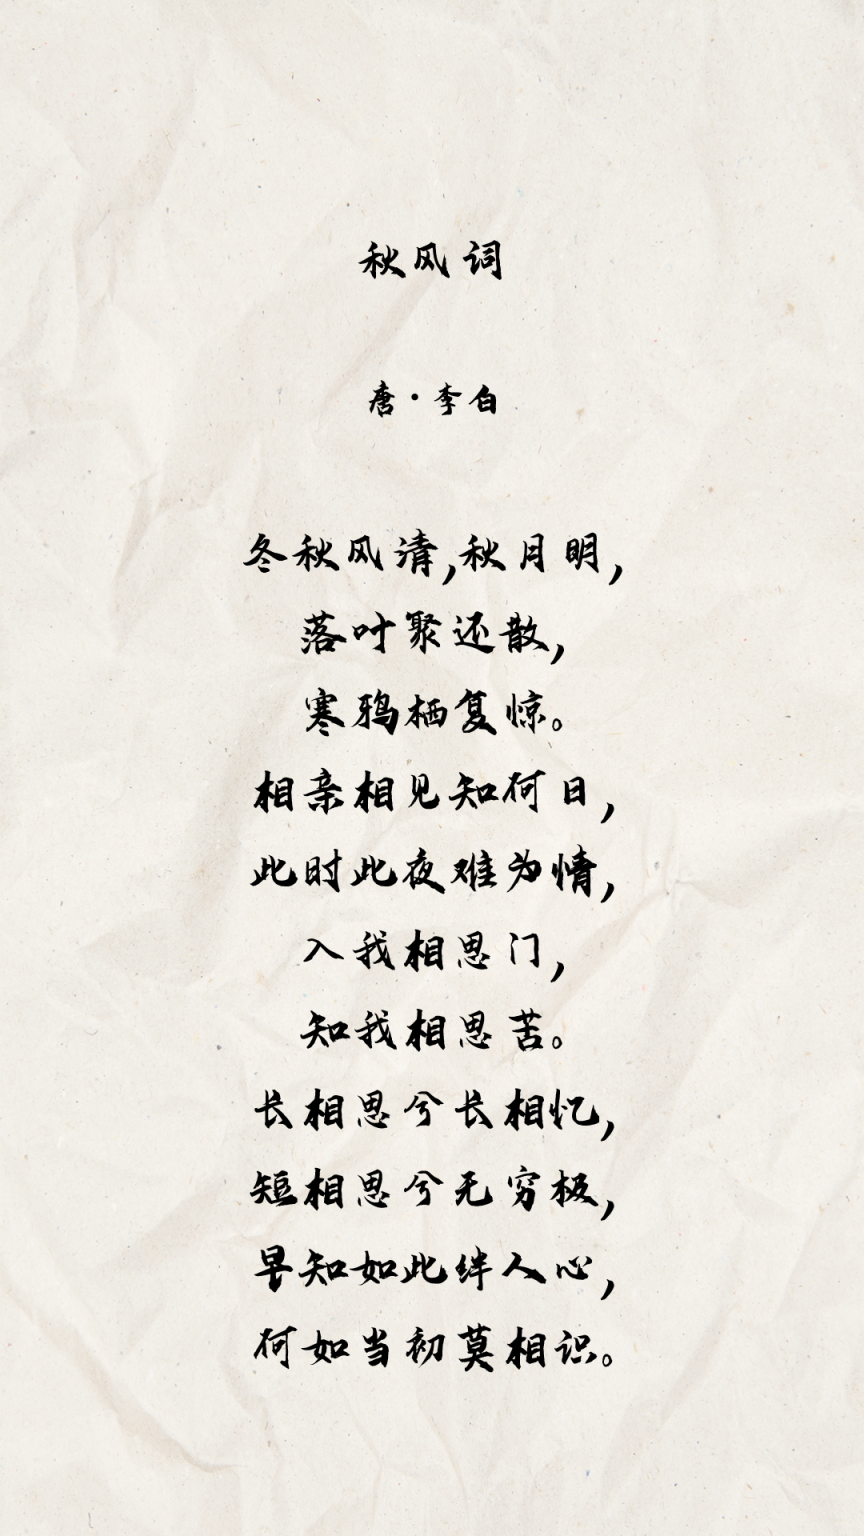 秋风词
唐·李白
冬秋风清,秋月明,
落叶聚还散,
寒鸦栖复惊。
相亲相见知何日,
此时此夜难为情,
入我相思门,
知我相思苦。
长相思兮长相忆,
短相思兮无穷极,
早知如此绊人心,
何如当初莫相识。